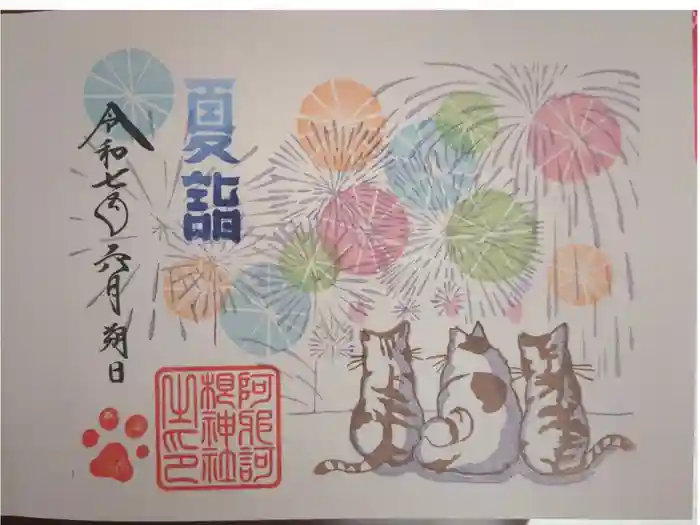 夏詣
令和七年六月朔日
阿邪訶
根神社
之印